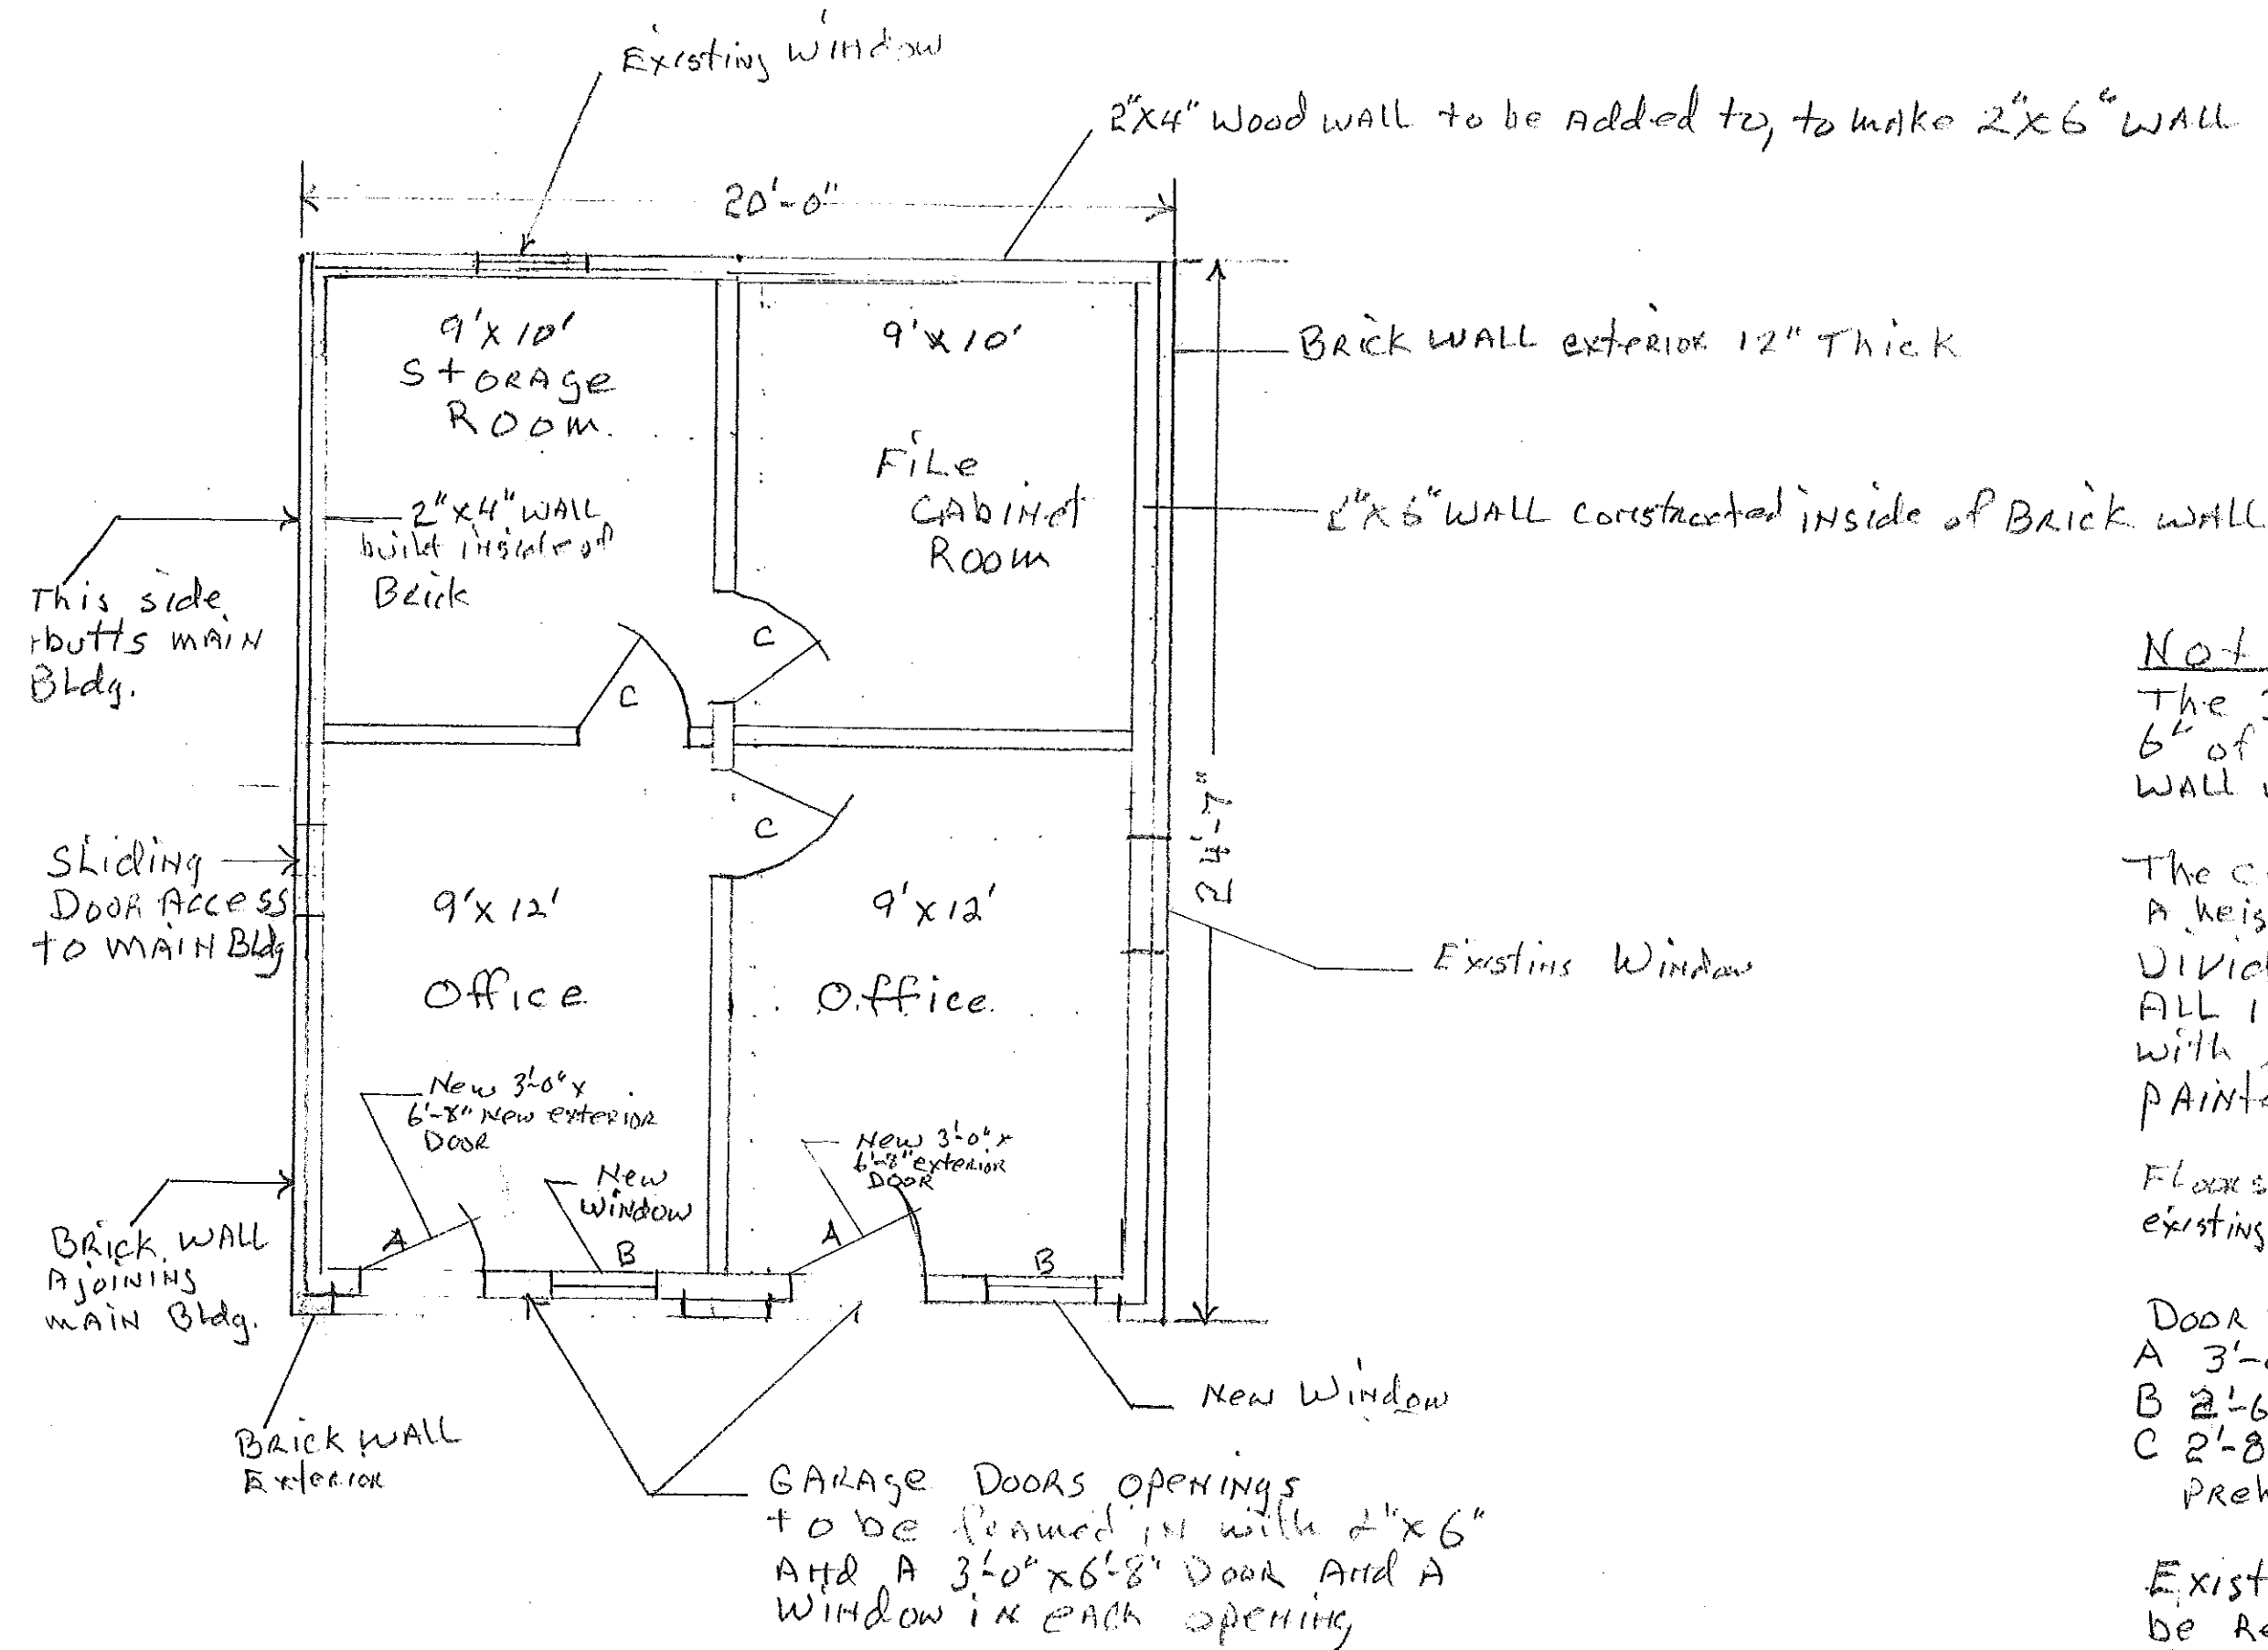 Existing Window
2"X4" Wood WALL to be Added to, to make 2"X6" WALL
20'-0"
9'X10'
StoRAge
Room.
9'X10'
FiLe
CAbiNet
Room
BRick WALL exterior 12" Thick
2"X4" WALL
build inside of
Brick
2"X6" WALL constructed iNside of BRick WALL
This side
butts mAiN
BLdg.
C
C
C
24'-7"
SLidiNg
DooR Access
to MAIN Bldg
9'X12'
Office
9'X12'
Office
Existing Window
New 3'-0" x
6'-8" New exterior
DOOR
New 3'-0" x
6'-8" exterior
DOOR
New
Window
A
B
A
B
BRick WALL
AjoiNiNg
mAiN Bldg.
BRick WALL
Exterior
New Window
GARAge DooRs opeNiNgs
to be framed iN with 2"x6"
ANd A 3'-0"x6'-8" DooR ANd A
WiNdow iN eAch opeNiNg
Not
The
6" of
WALL
The C
A heig
Divid
ALL I
with
PAiNte
FLoors
existing
DOOR
A 3'-
B 2'-6
C 2'-8
PReh
Exist
be Re